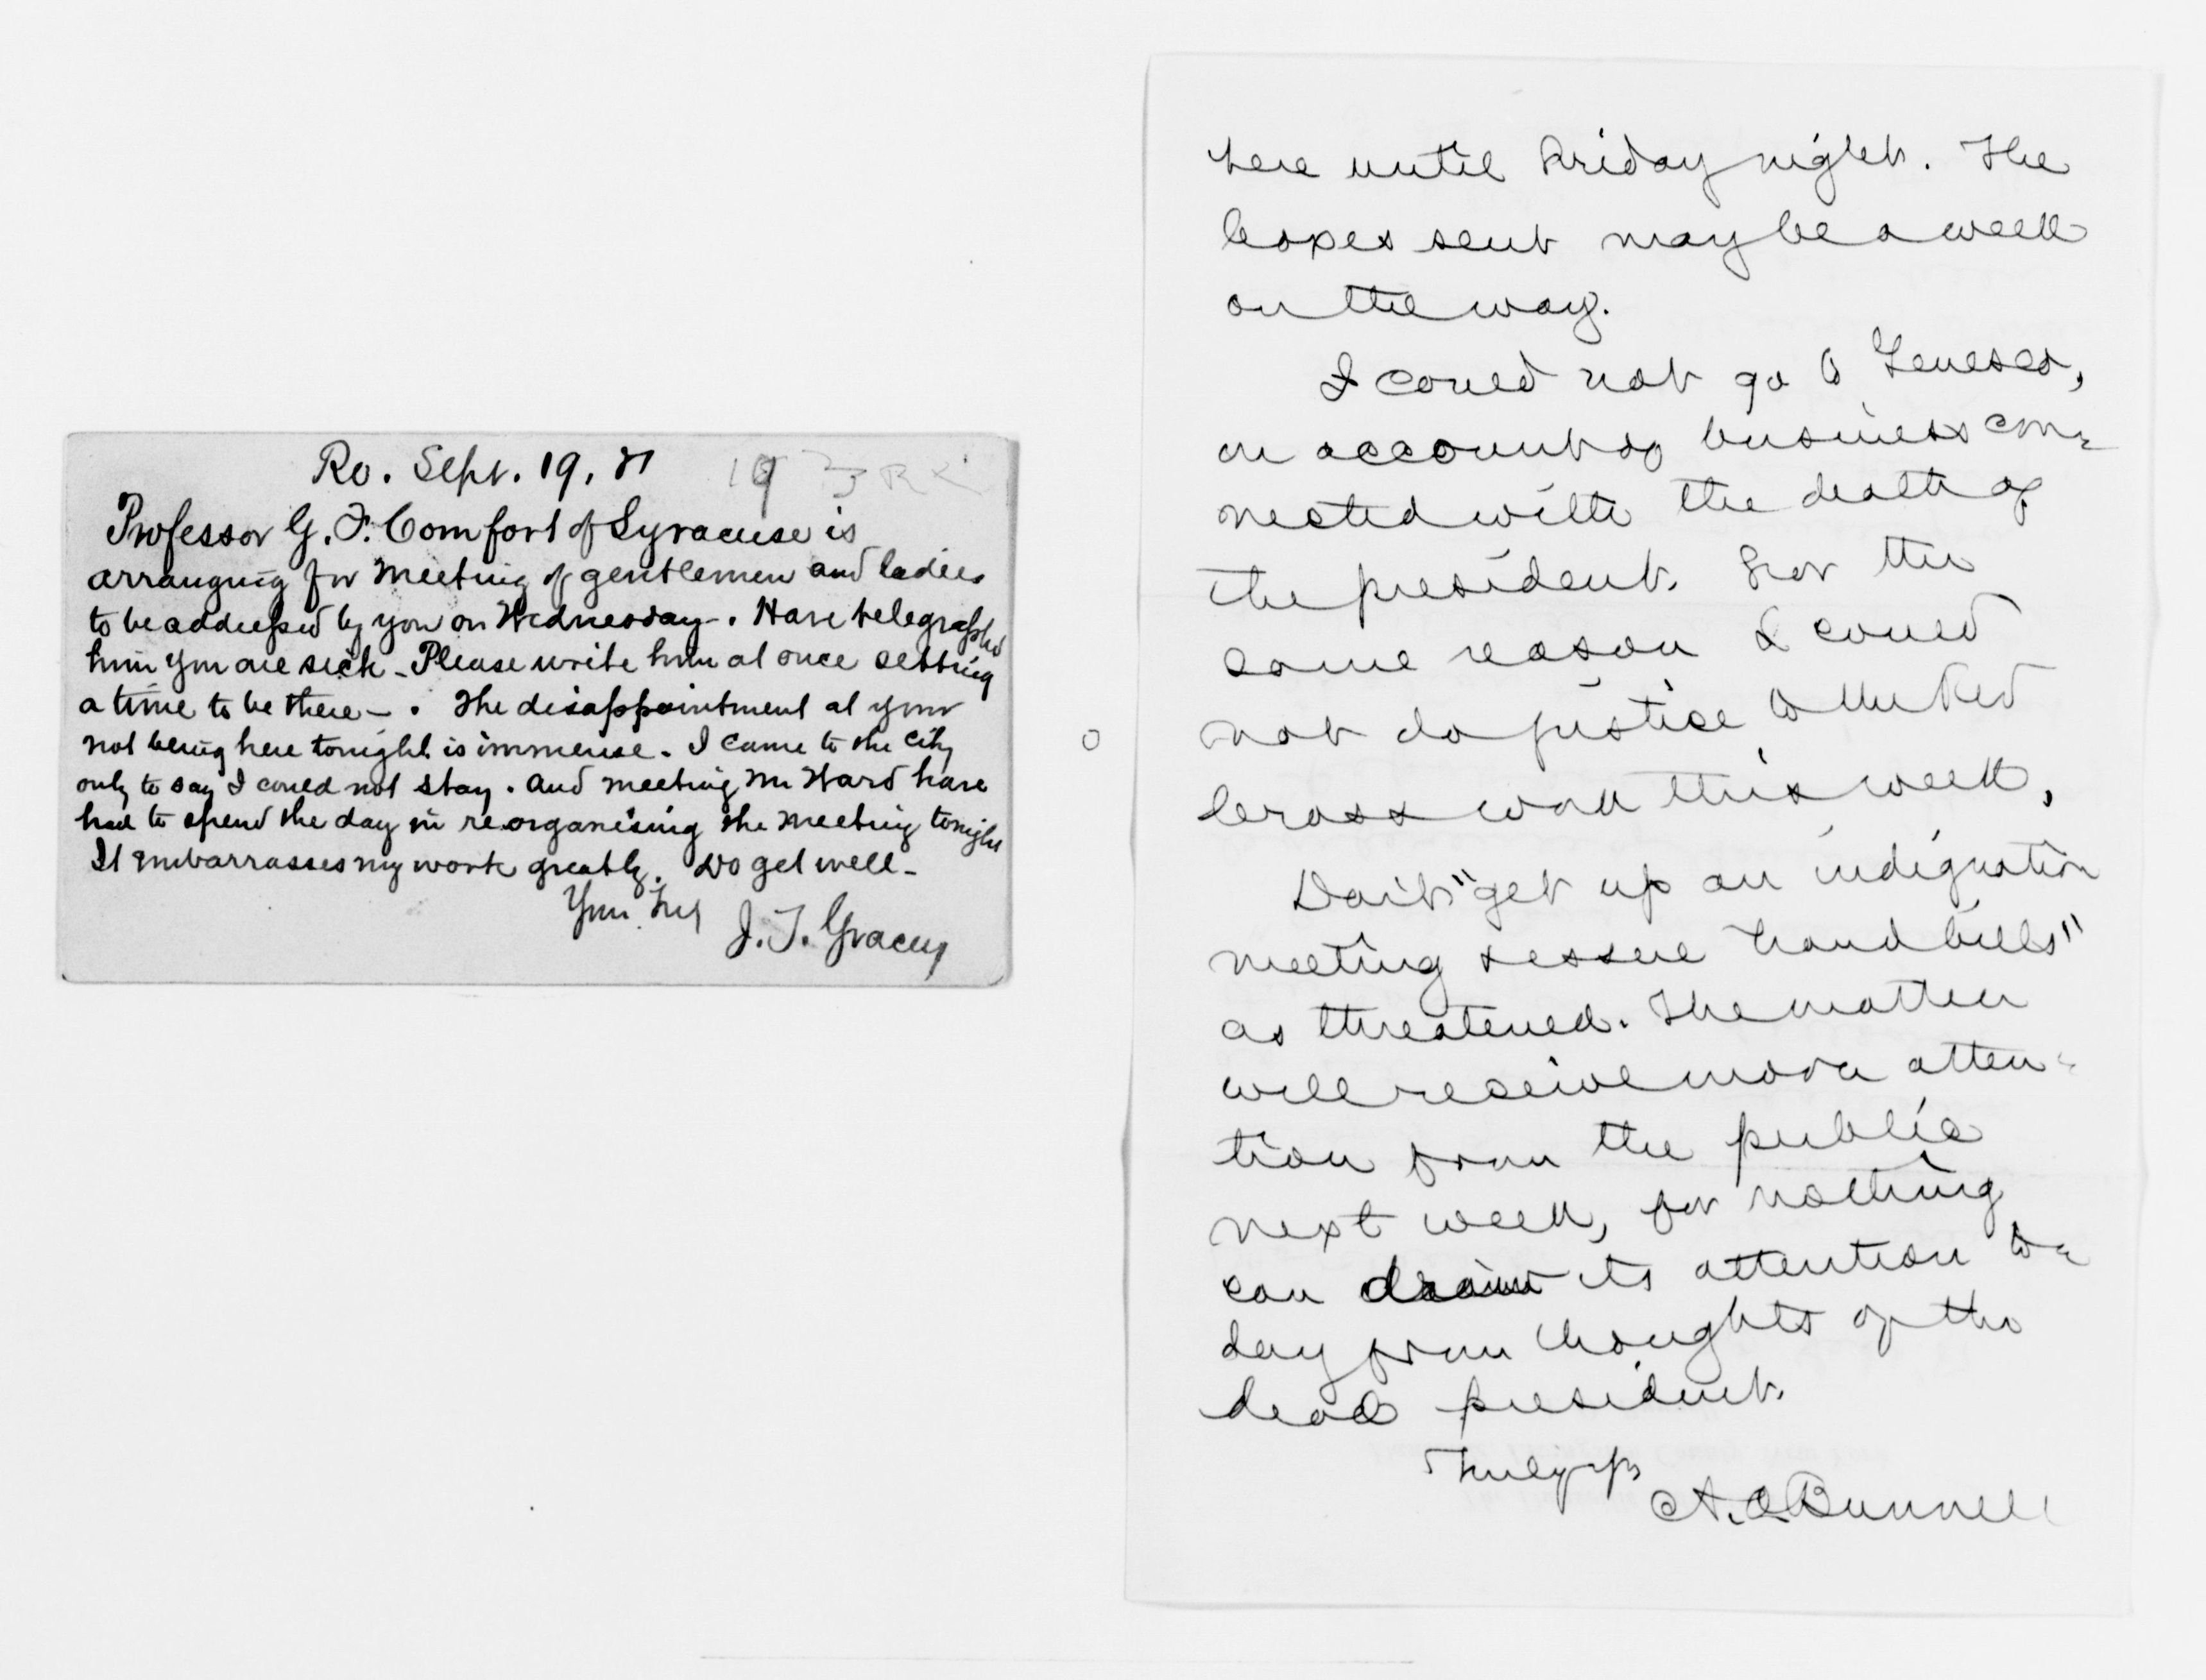 Ro. Sept. 19, 81
Professor G. F. Comfort of Syracuse is
arranging for meeting of gentlemen and ladies
to be addressed by you on Wednesday - . Have telegraphed
him you are sick - Please write him at once setting
a time to be there - . The disappointment at your
not being here tonight is immense. I came to the city
only to say I could not stay. And meeting Mr Ward have
had to spend the day in reorganising the meeting tonight
It embarrasses my work greatly. Do get well -
J. T. Gracey
here until Friday night. The
boxes sent may be a week
on the way.
I could not go to Geneseo,
on account of business con-
nected with the death of
the president. For the
same reason I could
not do justice to the Red
Cross work this week.
Don't "get up an indignation
meeting & issue hand bills"
as threatened. The matter
will receive more atten-
tion from the public
next week, for nothing
can draw its attention to-
day from thoughts of the
dead president.
Truly yrs
A. O. Bunnell